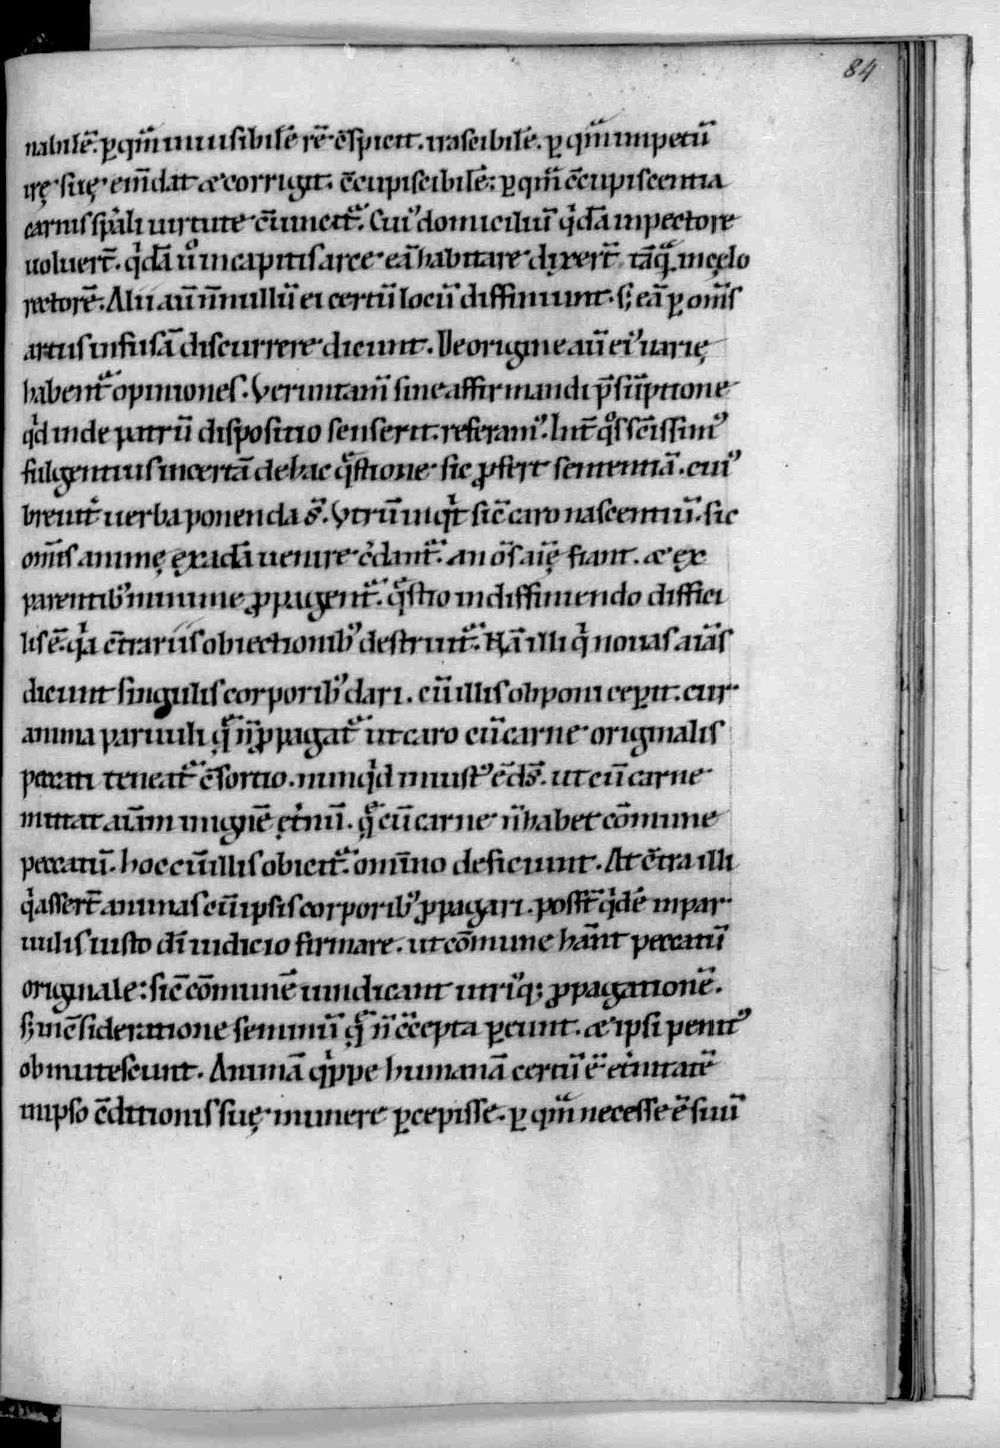 84
nabilē. ꝑ quā inuisibilē rē ↄ̄spicit. irascibilē. ꝑ quā impetū
irę suę em̄dat æ corrigit. ↄ̄cupiscibilē: ꝑ quā ↄ̄cupiscentia
carnis sp̄ali uirtute ↄ̄iuncit᷑. Cuiꝰ domiciliū qͥdā in pectore
uoluer̄t. qͥdā ů in capitis arce eā habitare dixer̄t tāqͣ in cęlo
rectorē. Alii aū n̄nullū ei certū locū diffiniunt. s; eā ꝑ om̄s
artus infusā discurrere dicunt. De origine aū eiꝰ uarię
habent᷑ opiniones. Veruntam̄ sine affirmandi p̄sūptione
qd̄ inde patrū dispositio senserit. referamꝰ. Int̄ qͦs scīssimꝰ
fulgentius incertā de hac q̄stione sic ꝓfert sententiā. cuiꝰ
breuit̄ uerba ponenda s̄. Vtrū inqͥt sic̄ caro nascentiū. sic
om̄s animę ex adā uenire c̄dant᷑. an ōs aīę fiant. æ ex
parentibꝰ minime ꝓpagent᷑. q̄stio in diffiniendo diffici
lis ē. qͥa ↄ̄trariis obiectionibꝰ destruit᷑. Nā illi qͥ nouas aīas
dicunt singulis corporibꝰ dari. cū illis obponi ceperit. cur
anima paruuli quę n̄ ꝓpagat᷑ ut caro cū carne originalis
peccati teneat᷑ ↄ̄sortio. nunqͥd iniustꝰ ē d̄s. ut cū carne
mittat aīam in igнē ęt̄nū. quę cū carne n̄ habet cōmune
peccatū. hoc cū illis obicit᷑. omīno deficiunt. At ↄ̄tra illi
qͥ asser̄t animas cū ipsis corporibꝰ ꝓpagari. poss̄t qͥdē in par
uulis iusto dī iudicio firmare. ut cōmune hāant peccatū
originale: sic̄ cōmunē uindicant utriꝰq; ꝓpagationē.
s; in ↄ̄sideratione seminū quę n̄ ↄ̄cepta ꝑeunt. æ ipsi penitꝰ
obmutescunt. Animā qͥppe humanā certū ē et̄nitatē
in ipso ↄ̄ditionis suę munere ꝑcepisse. ꝑ quā necesse ē siuū